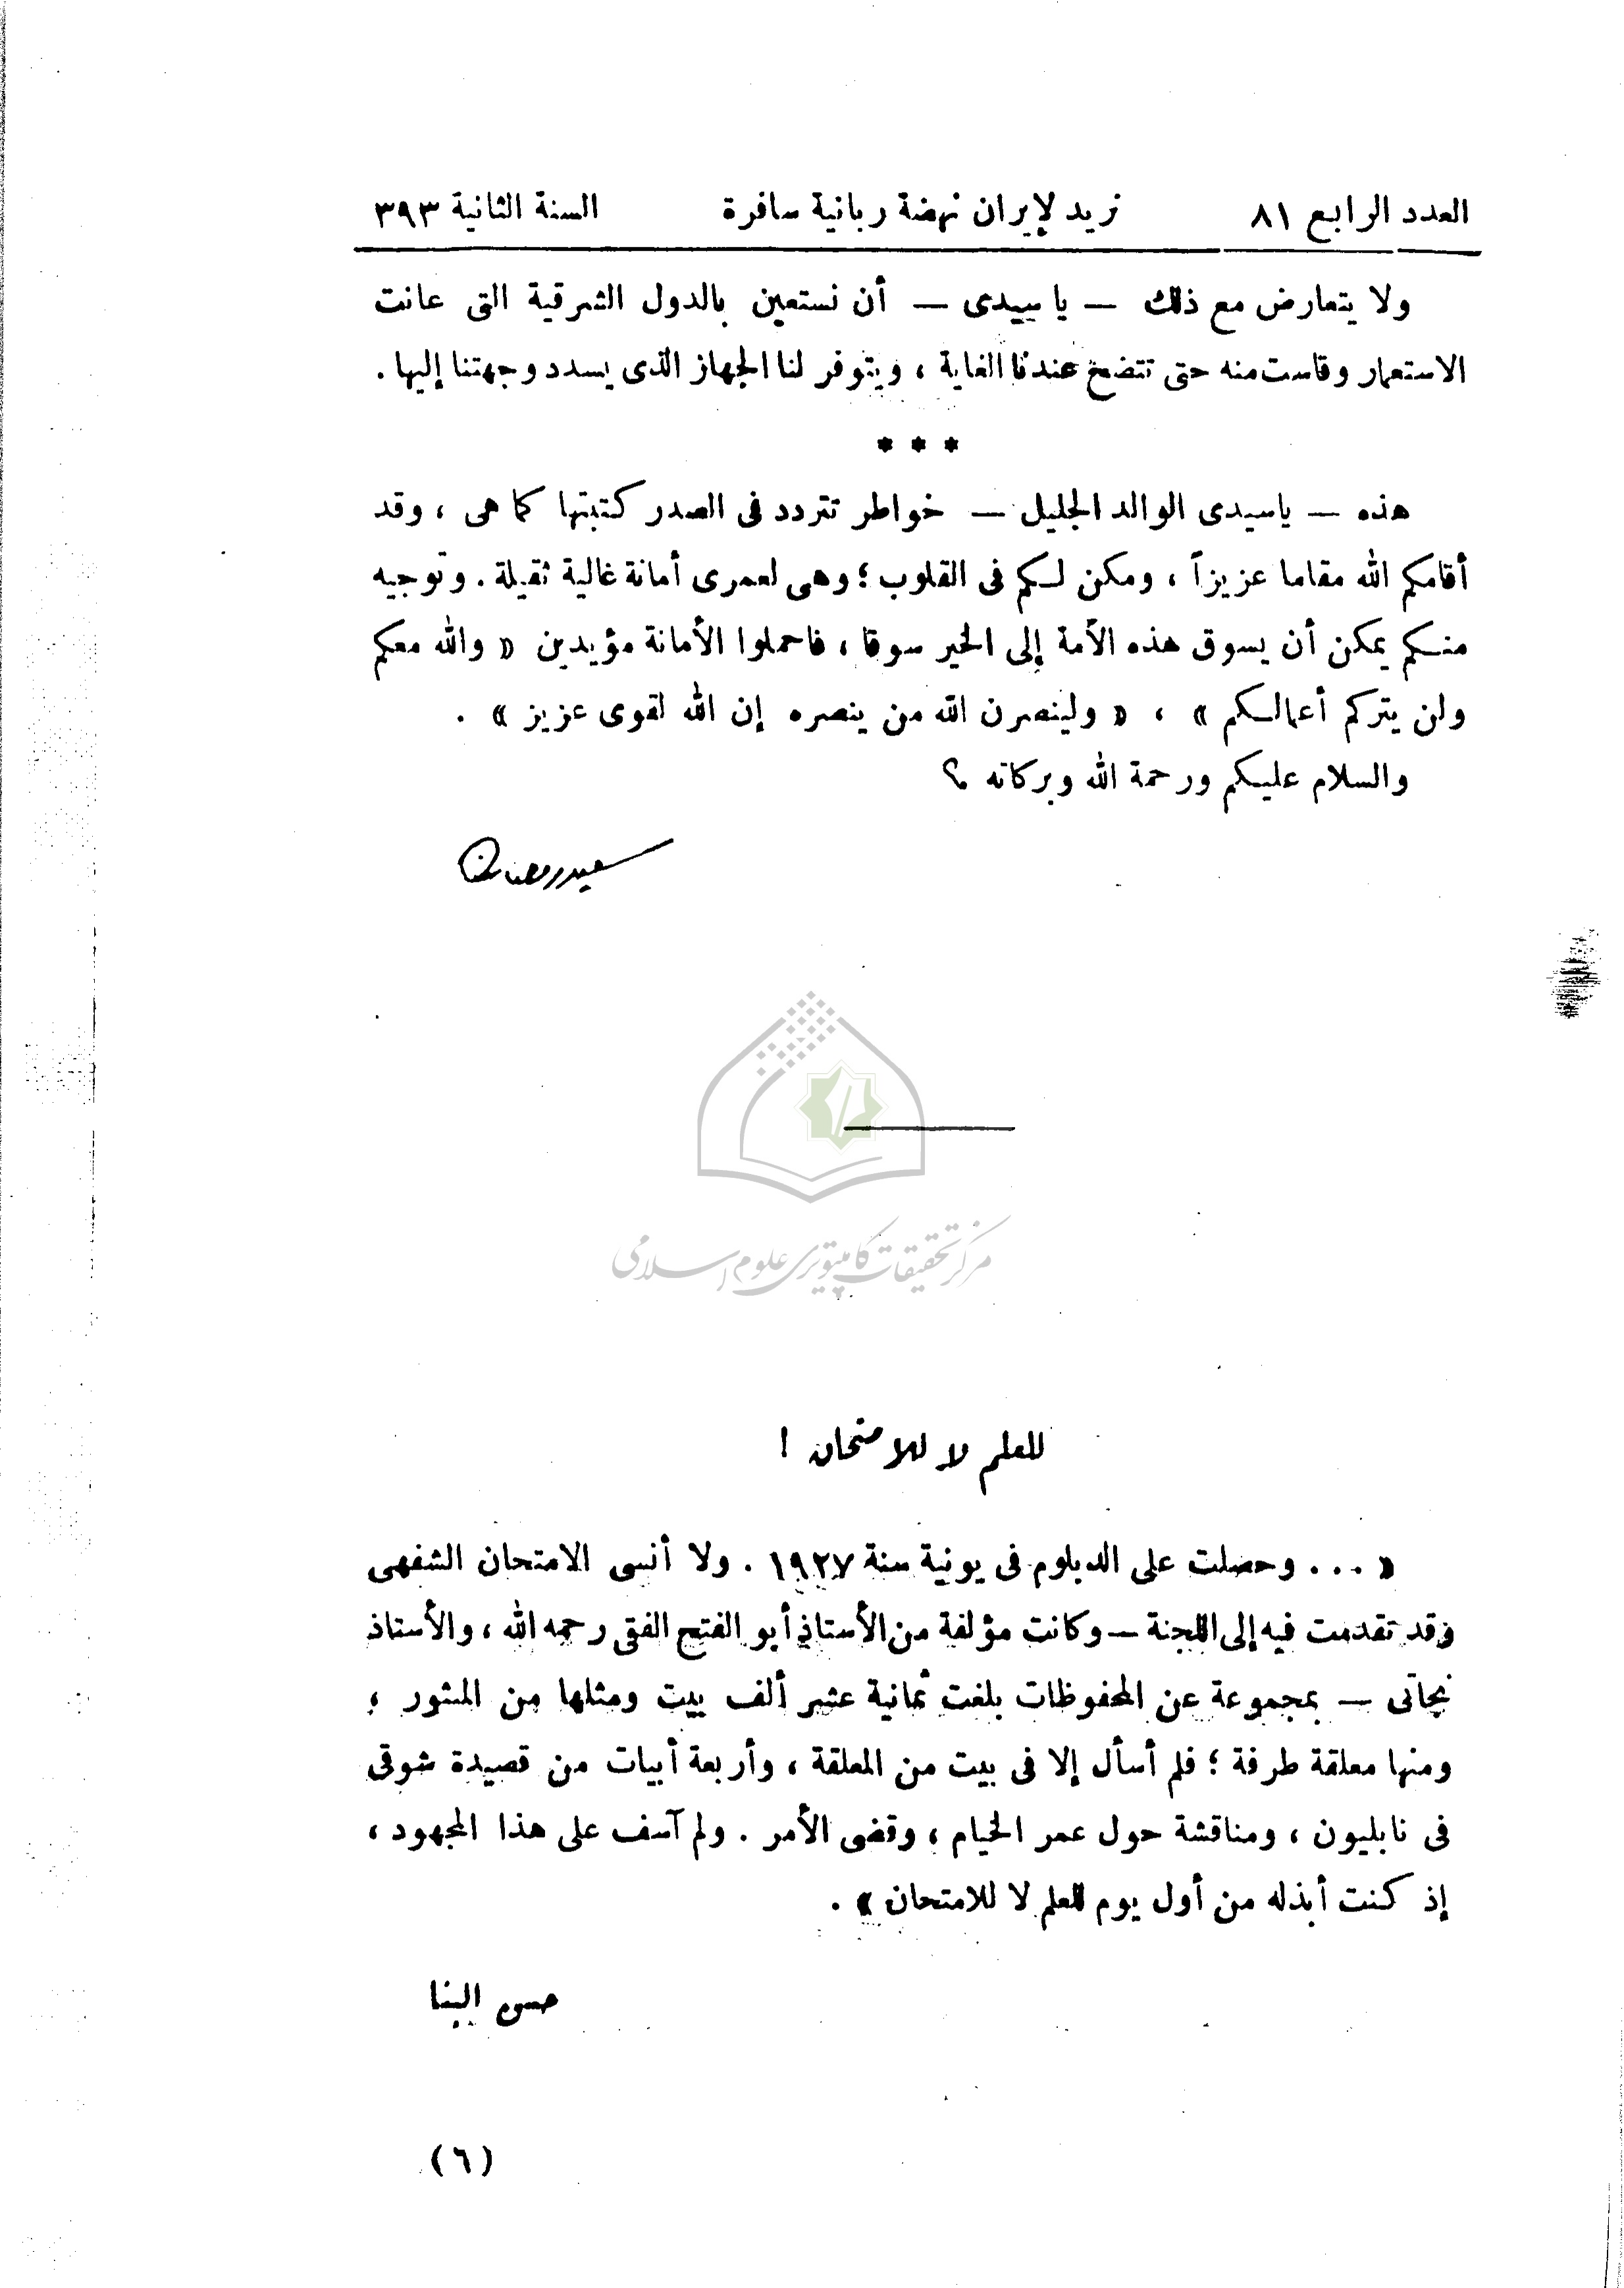 العدد الرابع ٨١ نريد لإيران نهضة ربانية سافرة السنة الثانية ٣٩٣
ولا يتعارض مع ذلك — يا سيدى — أن نستعين بالدول الشرقية التى عانت
الاستعمار وقاست منه حتى تتضح عندنا الغاية ، ويتوفر لنا الجهاز الذى يسدد وجهتنا إليها .
* * *
هذه — ياسيدى الوالد الجليل — خواطر تتردد فى الصدر كتبتها كما هى ، وقد
أقامكم الله مقاما عزيزاً ، ومكن لكم فى القلوب ؛ وهى لعمرى أمانة غالية ثقيلة . وتوجيه
منكم يمكن أن يسوق هذه الأمة إلى الخير سوقا ، فاحملوا الأمانة مؤيدين « والله معكم
ولن يتركم أعمالكم » ، « ولينصرن الله من ينصره إن الله لقوى عزيز » .
والسلام عليكم ورحمة الله وبركاته ؟
سعيد رمضان
مركز تحقیقات کامپیوتری علوم اسلامی
للعلم لا للامتحان !
« ... وحصلت على الدبلوم فى يونية سنة ١٩٢٧ . ولا أنسى الامتحان الشفهى
وقد تقدمت فيه إلى اللجنة — وكانت مؤلفة من الأستاذ أبو الفتح الفقى رحمه الله ، والأستاذ
نجاتى — بمجموعة عن المحفوظات بلغت ثمانية عشر ألف بيت ومثلها من المنثور ،
ومنها معلقة طرفة ؛ فلم أسأل إلا فى بيت من المعلقة ، وأربعة أبيات من قصيدة شوقى
فى نابليون ، ومناقشة حول عمر الخيام ، وقضى الأمر . ولم آسف على هذا المجهود ،
إذ كنت أبذله من أول يوم للعلم لا للامتحان » .
حسن البنا
(٦)